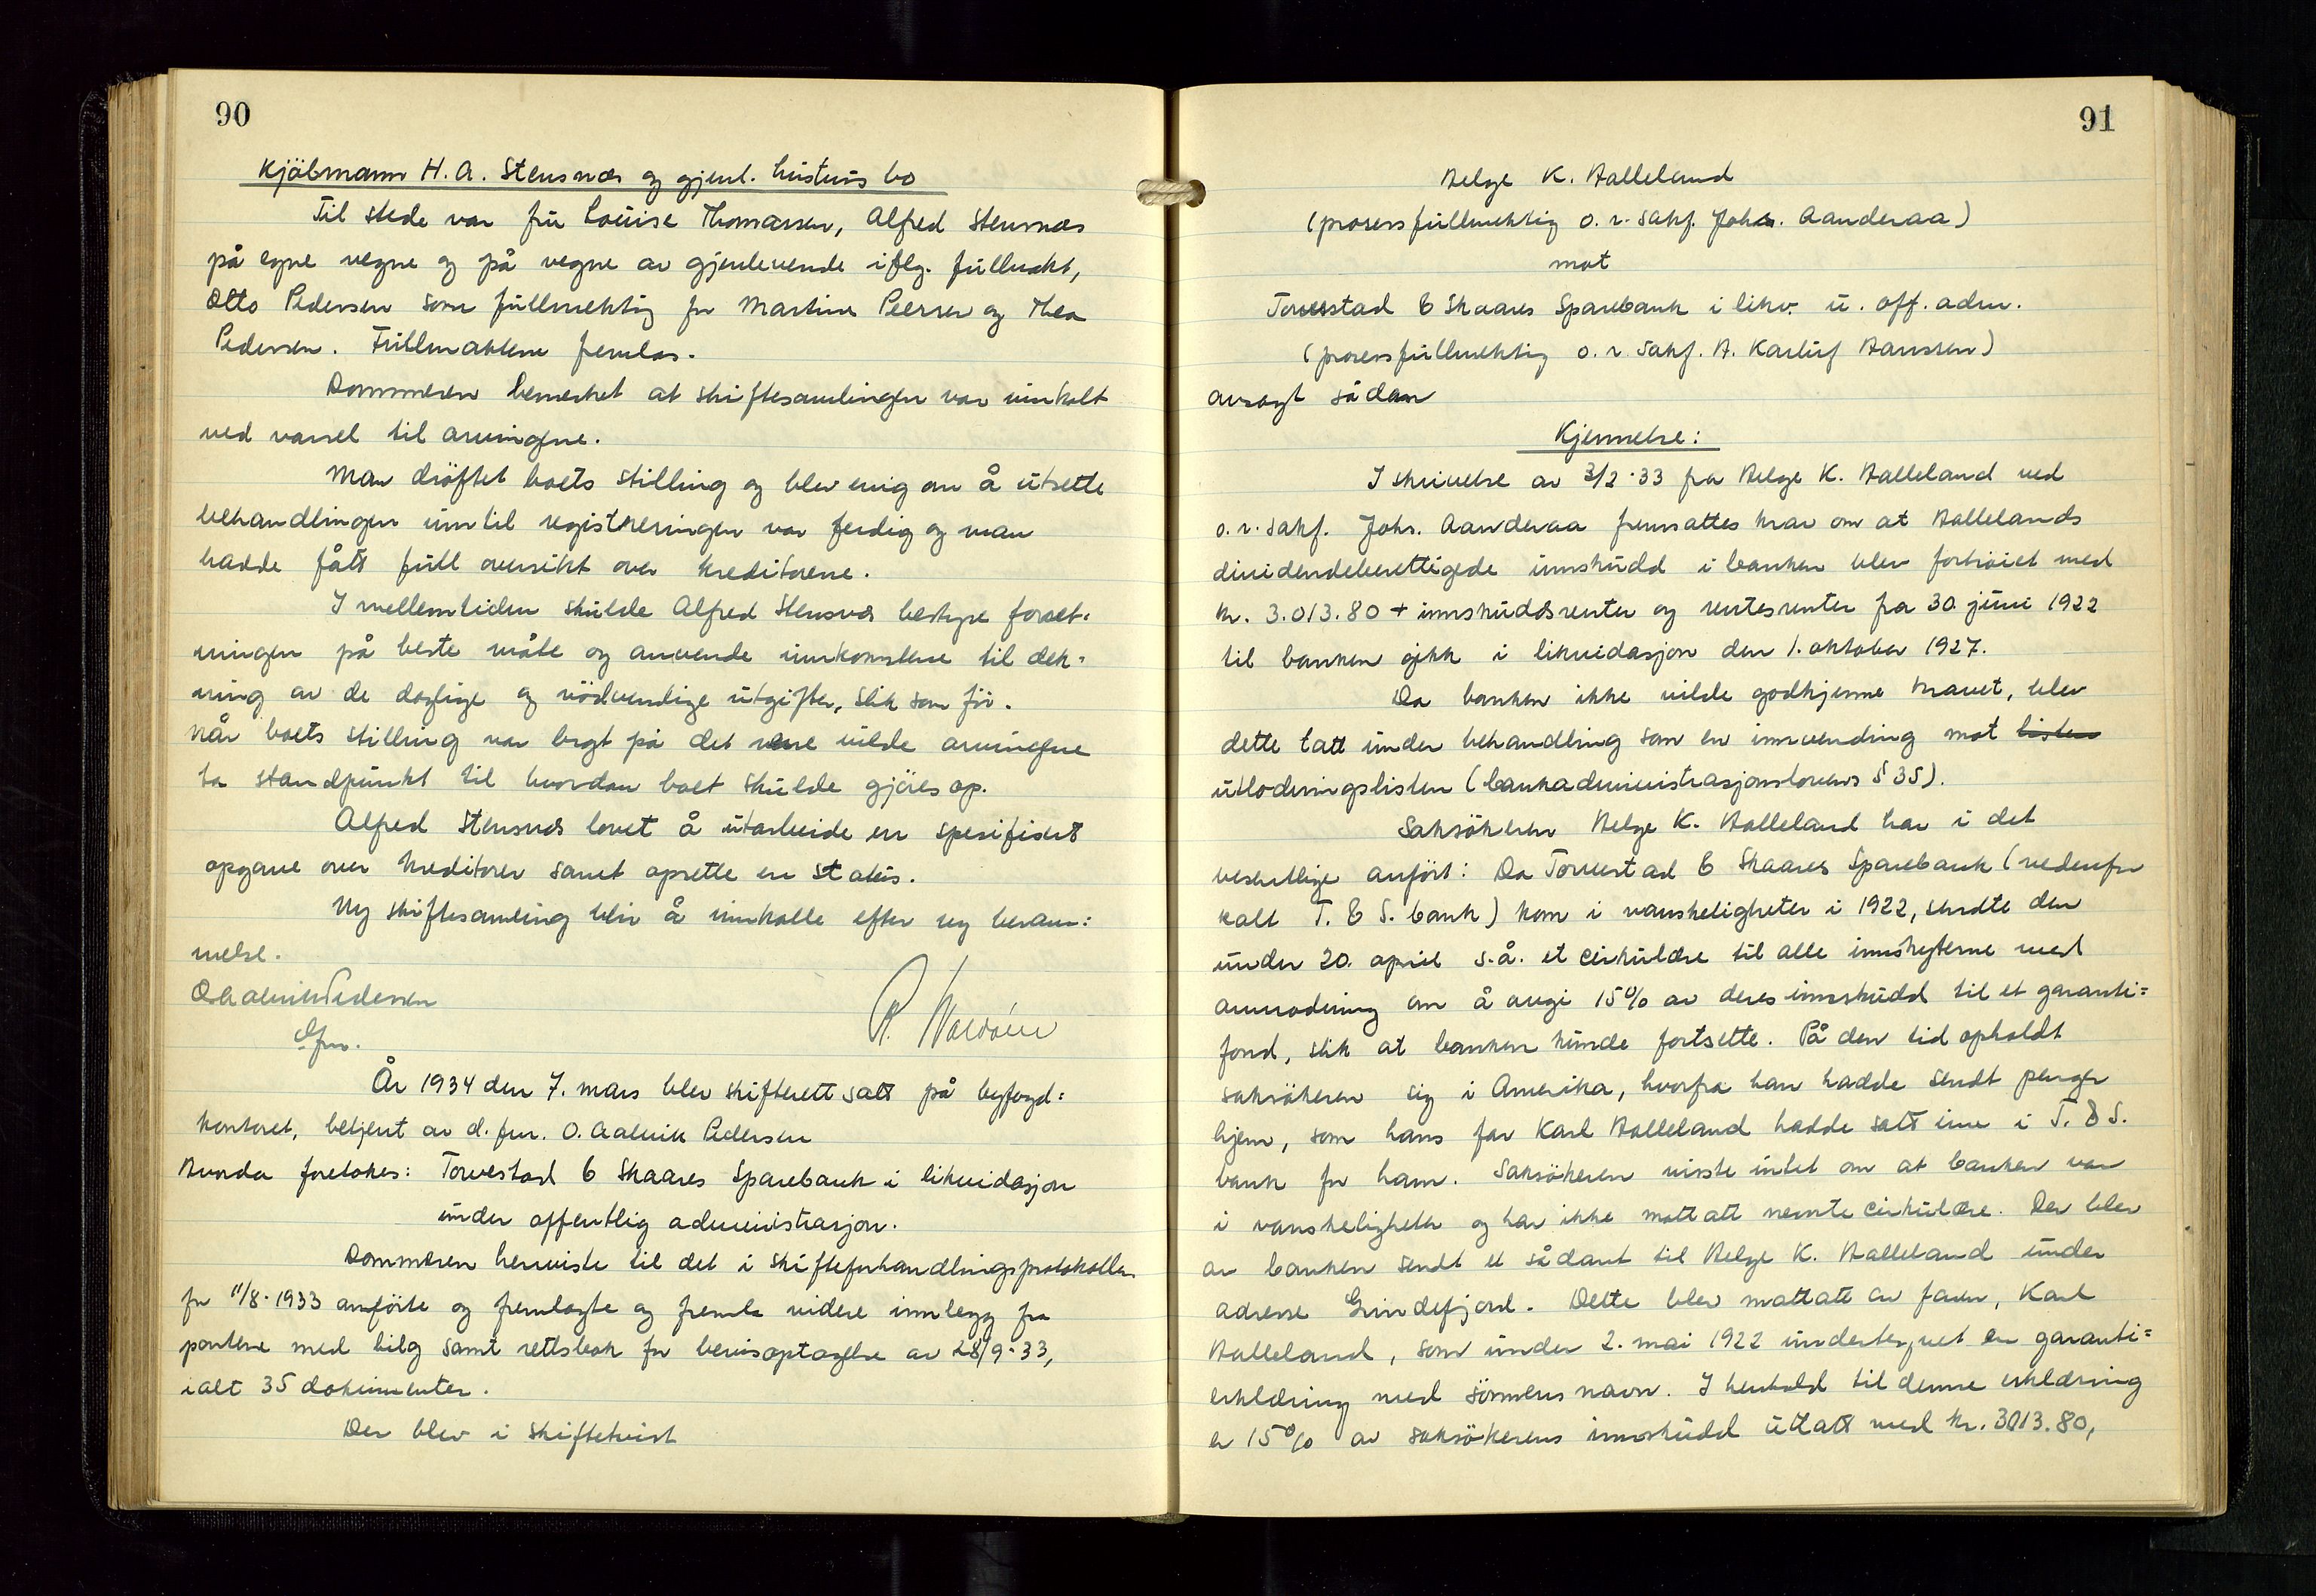 90
Kjöbmann H. A. Stensnæs og gjenl. hustrus bo
Til stede var fru Louise Thomassen, Alfred Stensnæs
på egne vegne og på vegne av gjenlevende iflg. fullmakt,
Otto Pedersen som fullmektig for Martine Peersen og Thea
Pedersen. Fullmaktene fremlas.
Dommeren bemerket at skiftesamlingen var innkalt
ved varsel til arvingene.
Man dröftet boets stilling og blev enig om å utsette
behandlingen inntil registreringen var ferdig og man
hadde fått full oversikt over kreditorene.
I mellemtiden skulde Alfred Stensnæs bestyre forret-
ningen på beste måte og anvende innkomstene til dek-
ning av de daglige og nödvendige utgifter, slik som för.
Når boets stilling var bragt på det rene vilde arvingene
ta standpunkt til hvordan boet skulde gjöres op.
Alfred Stensnæs lovet å utarbeide en spesifisert
opgave over kreditorer samt oprette en status.
Ny skiftesamling blir å innkalle efter ny beram-
melse.
O Aalvik Pedersen
dfm.
År 1934 den 7. mars blev skifterett satt på byfogd-
kontoret, betjent av d. fm. O. Aalvik Pedersen
Hvorda foretokes: Torvestad & Skaares Sparebank i likvidasjon
under offentlig administrasjon.
Dommeren henviste til det i skifteforhandlingsprotokollen
for 11/8-1933 anförte og fremlagte og fremla videre innlegg fra
partene med bilag samt rettsbok for bevisoptagelse av 28/9-33,
ialt 35 dokumenter.
Der blev i skiftetvist
91
Helge K. Halleland
(prosessfullmektig o. r. sakf. Johs. Aanderaa)
mot
Torvestad & Skaares Sparebank i likv. u. off. adm.
(prosessfullmektig o. r. sakf. H. Karluf Hanssen)
avsagt sådan
Kjennelse:
I skrivelse av 3/2-33 fra Helge K. Halleland ved
o. r. sakf. Johs. Aanderaa fremsattes krav om at Hallelands
dividendeberettigede innskudd i banken blev forhöiet med
kr. 3.013.80 + innskuddsrenter og rentesrenter fra 30. juni 1922
til banken gikk i likvidasjon den 1. oktober 1927.
Da banken ikke vilde godkjenne kravet, blev
dette tatt under behandling som en innvending mot listen
utlodningslisten (bankadministrasjonslovens § 35).
Saksökeren Helge K. Halleland har i det
vesentlige anfört: Da Torvestad & Skaares Sparebank (nedenfor
kalt T. & S. bank) kom i vanskeligheter i 1922, sendte den
under 20. april s.å. et cirkulære til alle innskyterne med
anmodning om å avgi 15% av deres innskudd til et garanti-
fond, slik at banken kunde fortsette. På den tid opholdt
saksökeren sig i Amerika, hvorfra han hadde sendt penger
hjem, som hans far Karl Halleland hadde satt inn i T. & S.
bank for ham. Saksökeren visste intet om at banken var
i vanskeligheter og har ikke mottatt nevnte cirkulære. Der blev
av banken sendt et sådant til Helge K. Halleland under
adresse Grindefjord. Dette blev mottatt av faren, Karl
Halleland, som under 2. mai 1922 undertegnet en garanti-
erklæring med sönnens navn. I henhold til denne erklæring
er 15% av saksökerens innskudd uttatt med kr. 3013.80,